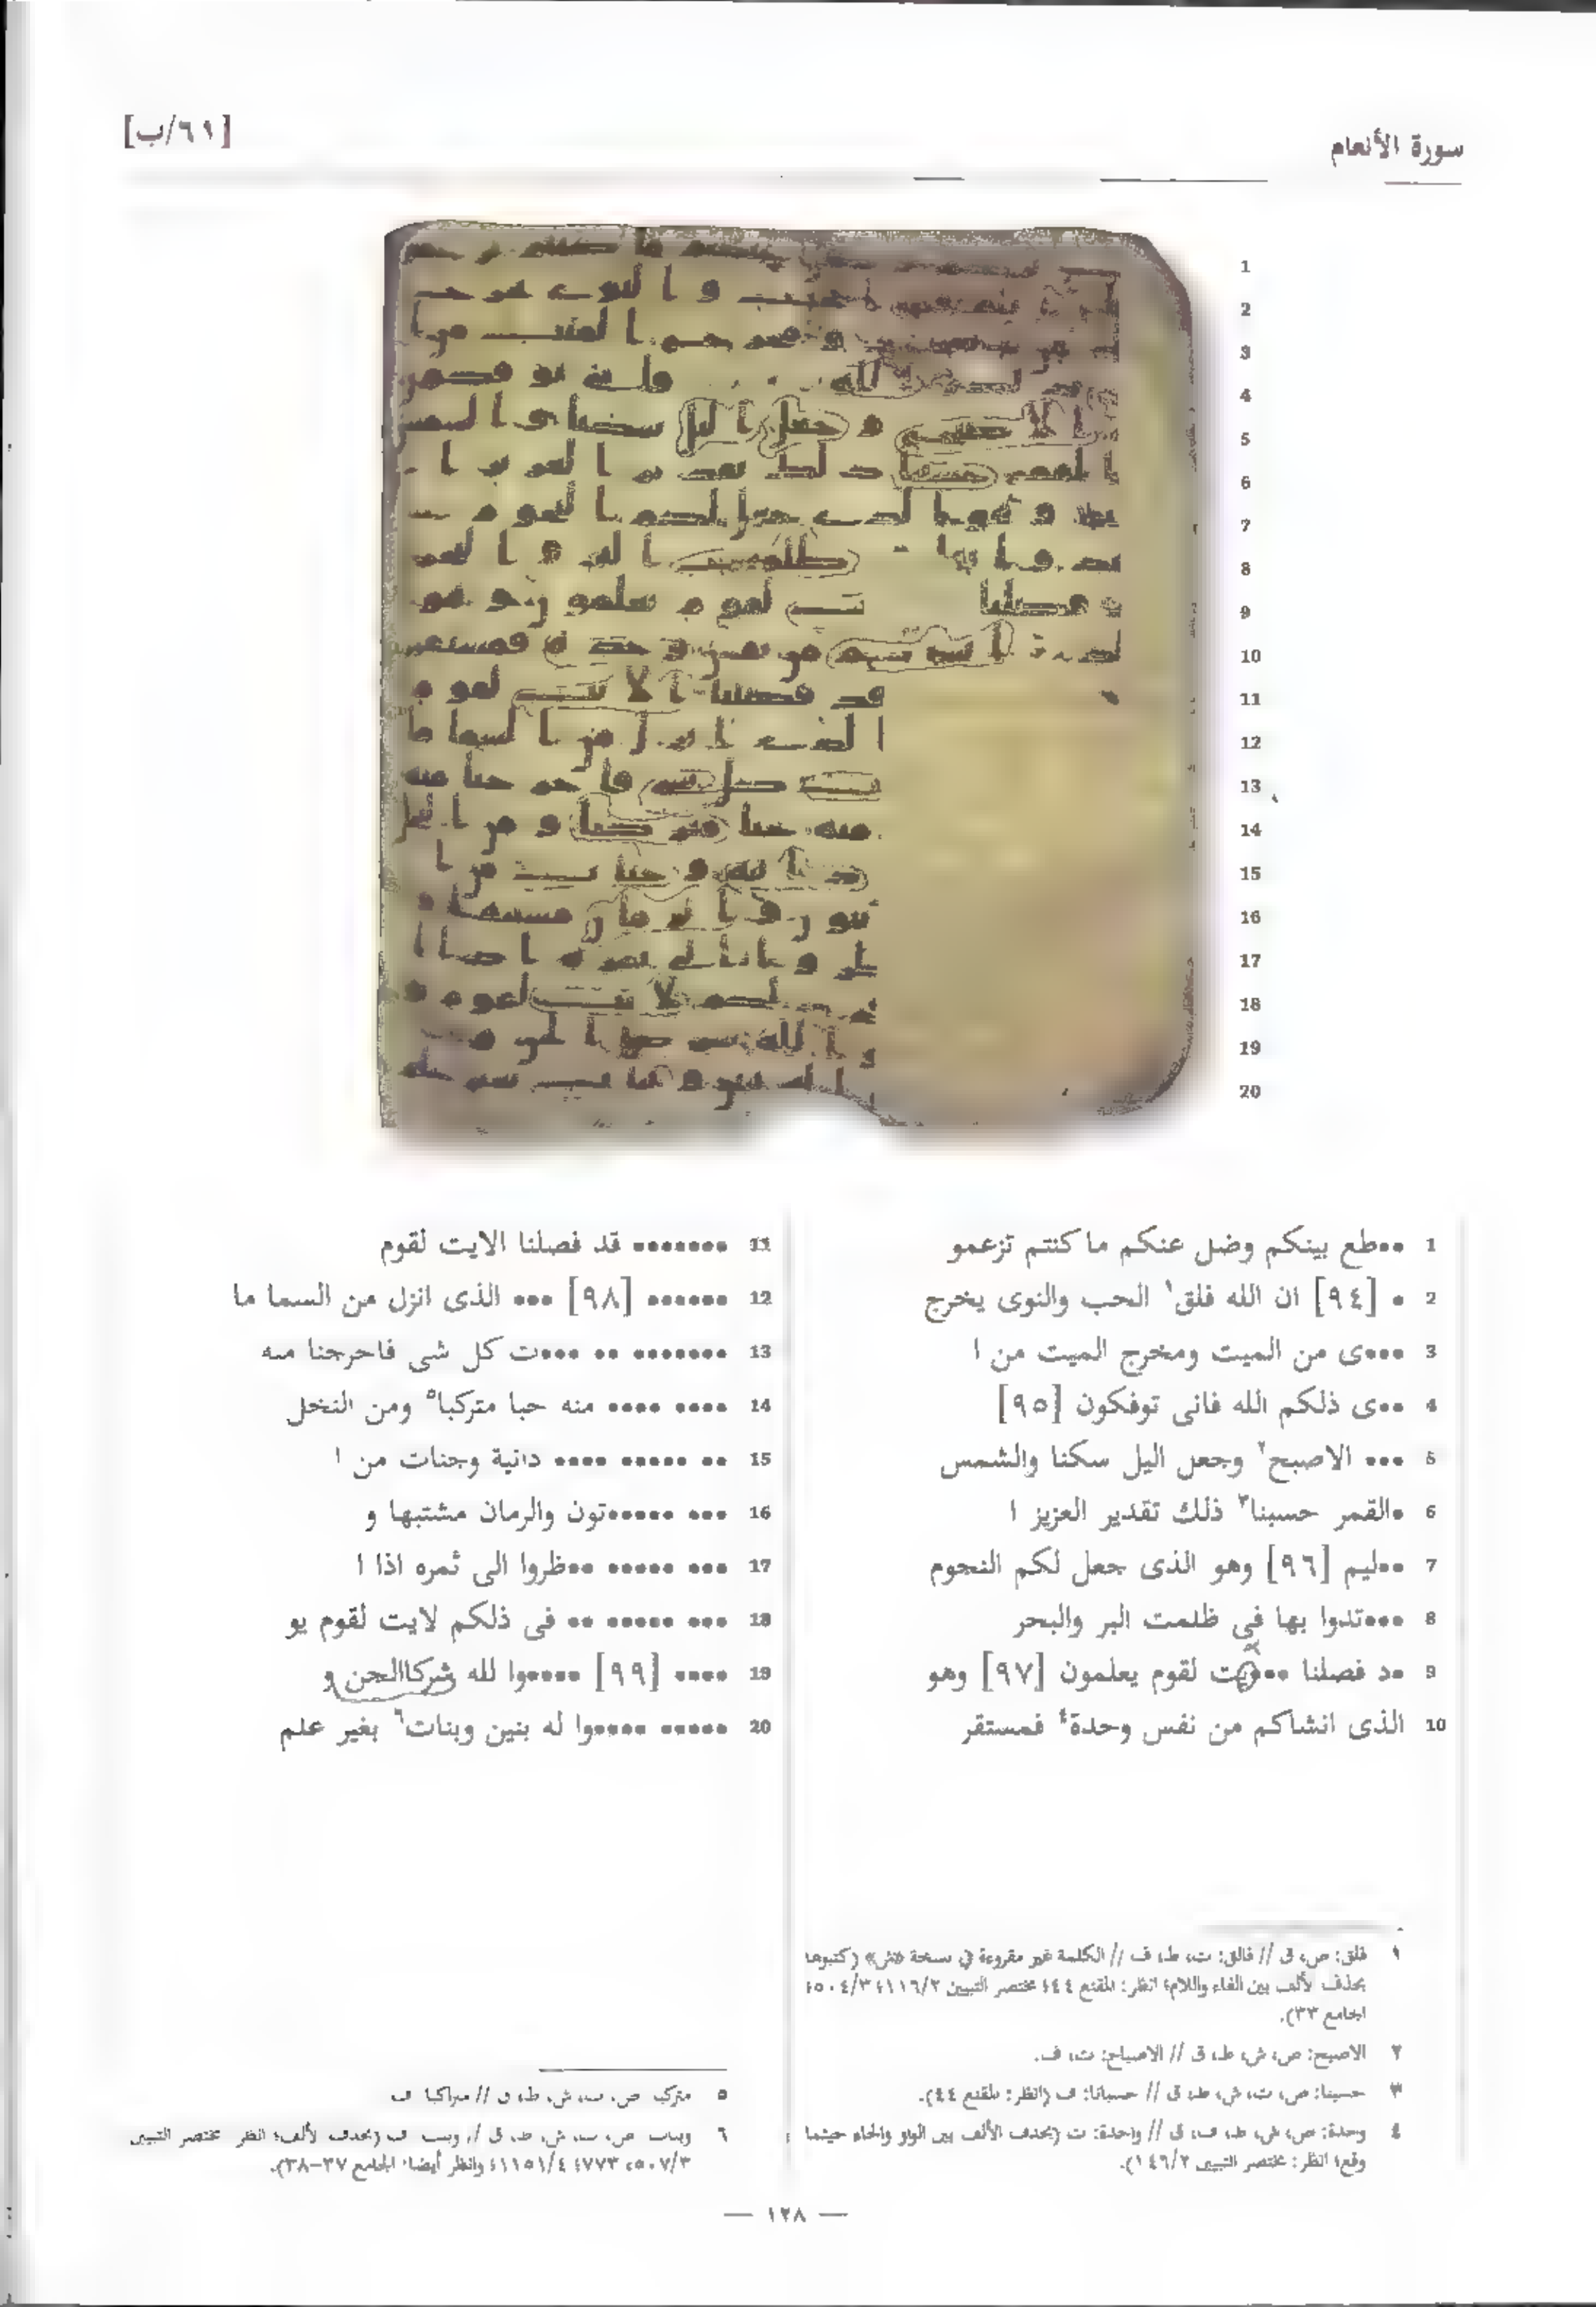 سورة الأنعام
[٦٩/ب]
1 ••طع بينكم وضل عنكم ما كنتم تزعمو
2 • [٩٤] ان الله فلق١ الحب والنوى يخرج
3 •••ى من الميت ومخرج الميت من ا
4 ••ى ذلكم الله فانى توفكون [٩٥]
5 ••• الاصبح٢ وجعل اليل سكنا والشمس
6 •القمر حسبنا٣ ذلك تقدير العزيز ا
7 ••ليم [٩٦] وهو الذى جعل لكم النجوم
8 •••تدوا بها في ظلمت البر والبحر
9 •د فصلنا •••يت لقوم يعلمون [٩٧] وهو
10 الذى انشاكم من نفس وحدة٤ فمستقر
11 ••••••• قد فصلنا الايت لقوم
12 •••••• [٩٨] ••• الذى انزل من السما ما
13 ••••••• •• •••ت كل شى فاحرجنا مىه
14 •••• •••• منه حبا متركبا٥ ومن النخل
15 •• ••••• •••• دانية وجنات من ا
16 ••• •••••تون والرمان مشتبها و
17 ••• ••••• ••ظروا الى ثمره اذا ا
18 ••• ••••• •• فى ذلكم لايت لقوم يو
19 •••• [٩٩] •••••وا لله شركاالجن و
20 ••••• •••••وا له بنين وبنات٦ بغير علم
١ فلق: ص، ق // فالق: ت، ط، ف // الكلمة غير مقروءة في نسخة «ش» (كتبوها
بحذف الألف بين الفاء واللام؛ انظر: المقنع ٤٤؛ مختصر التبيين ١١٦/٢؛ ٥٠٤/٣؛
الجامع ٣٣).
٢ الاصبح: ص، ش، ط، ق // الاصباح: ت، ف.
٣ حسبنا: ص، ت، ش، ط، ق // حسبانا: ف (انظر: المقنع ٤٤).
٤ وحدة: ص، ش، ط، ف، ق // واحدة: ت (بحذف الألف بين الواو والحاء حيثما
وقع؛ انظر: مختصر التبيين ١٤٦/٢).
٥ متركبا: ص، ت، ش، ط، ق // متراكبا: ف
٦ وبنات: ص، ت، ش، ط، ق // وبنت: ف (بحذف الألف؛ انظر: مختصر التبيين
٥٠٧/٣، ٧٧٣؛ ١١٥١/٤؛ وانظر أيضا: الجامع ٣٧–٣٨).
— ١٢٨ —